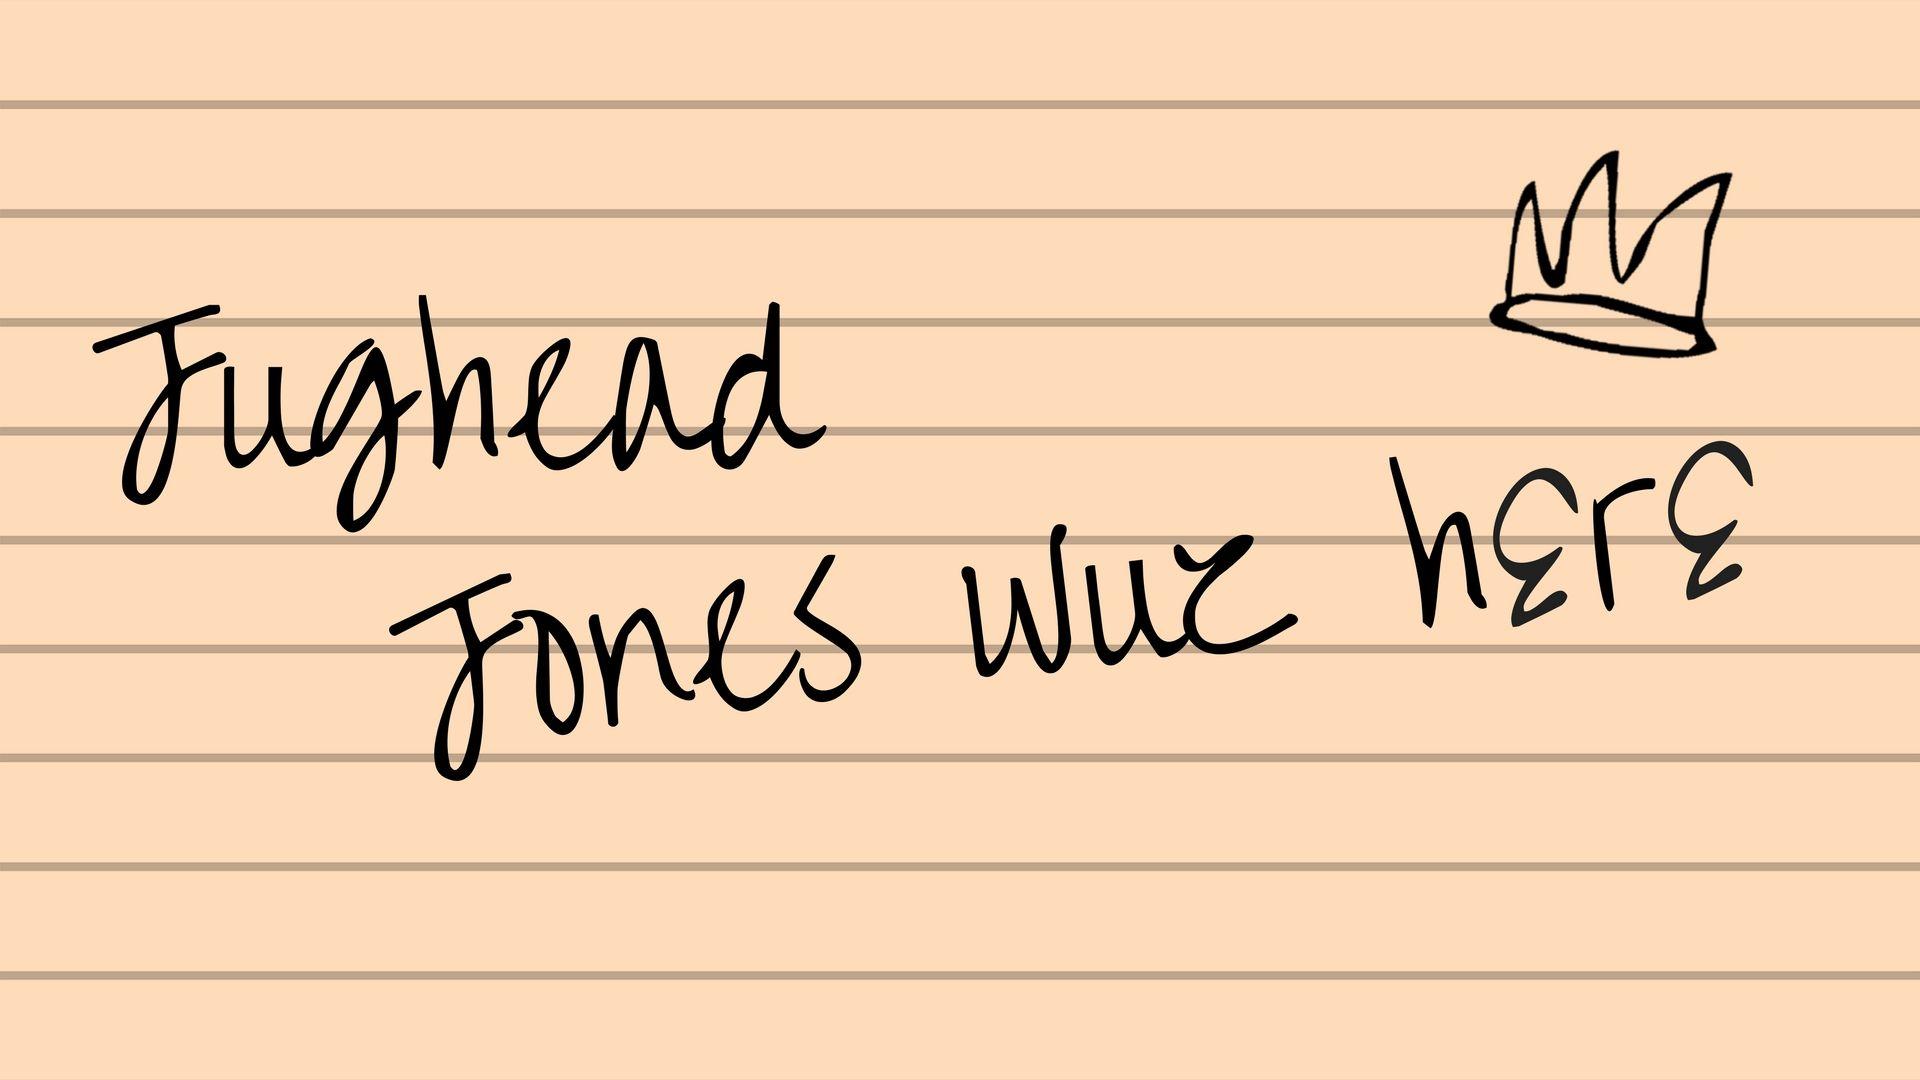 Jughead
Jones wuz hɛrɛ